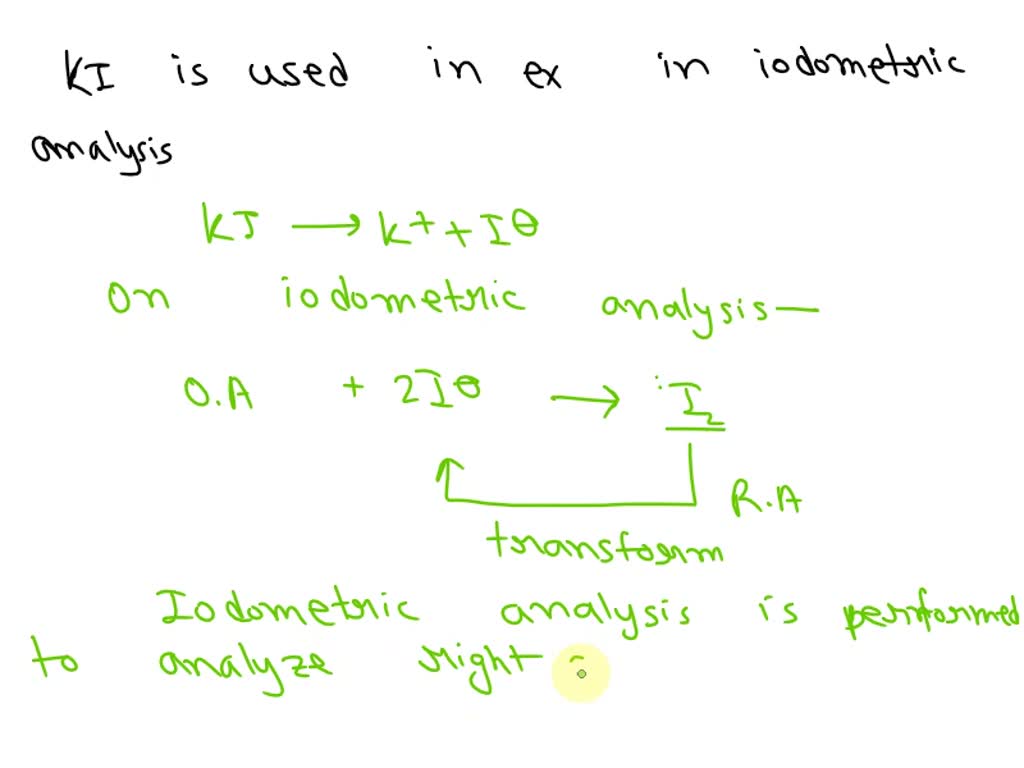 KI is used in ex in iodometric
analysis
KI → K+ + I⊖
On iodometric analysis—
O.A + 2I⊖ → I2
R.A
transform
Iodometric analysis is performed
to analyze right